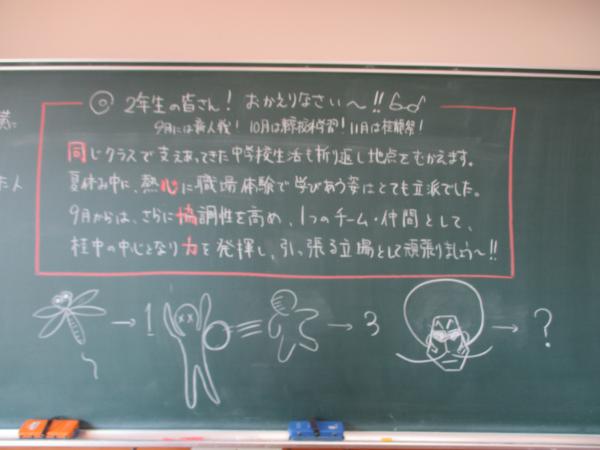 ◎ 2年生の皆さん! おかえりなさい〜!!
9月には新人戦! 10月は 学習! 11月は桂龍祭!
同じクラスで支えあってきた中学校生活も折り返し地点をむかえます。
夏休み中に、熱心に職場体験で学びあう姿はとても立派でした。
9月からは、さらに協調性を高め、1つのチーム・仲間として、
桂中の中心となり力を発揮し、引っ張る立場として頑張りましょう〜!!
た人
→ 1 → 3 → ?